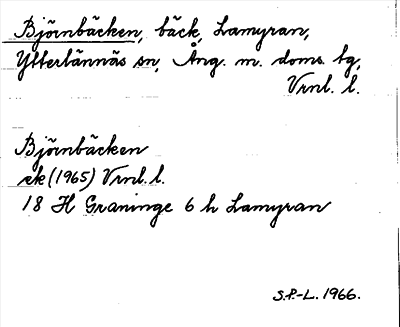 Björnbäcken, bäck, Lamyran,
Ytterlännäs sn, Ång. m. doms. tg,
Vrnl. l.
Björnbäcken
ek (1965) Vrnl. l.
18 H Graninge 6 h Lamyran
S.P.-L. 1966.